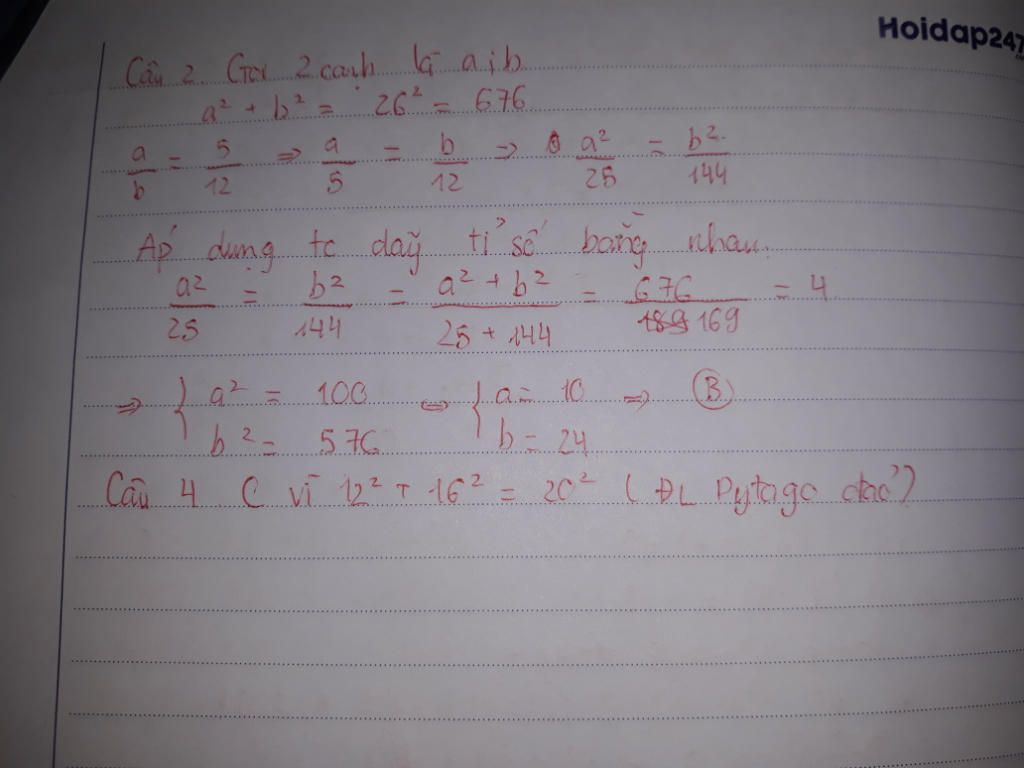 Hoidap247
Câu 2. Gọi 2 cạnh là a, b
a² + b² = 26² = 676
a/b = 5/12 ⇒ a/5 = b/12 ⇒ a²/25 = b²/144
Áp dụng tc dãy tỉ số bằng nhau.
a²/25 = b²/144 = (a² + b²)/(25 + 144) = 676/169 = 4
⇒ { a² = 100 ⇔ { a = 10 ⇒ (B)
b² = 576 b = 24
Câu 4. C vì 12² + 16² = 20² (ĐL Pytago đảo)